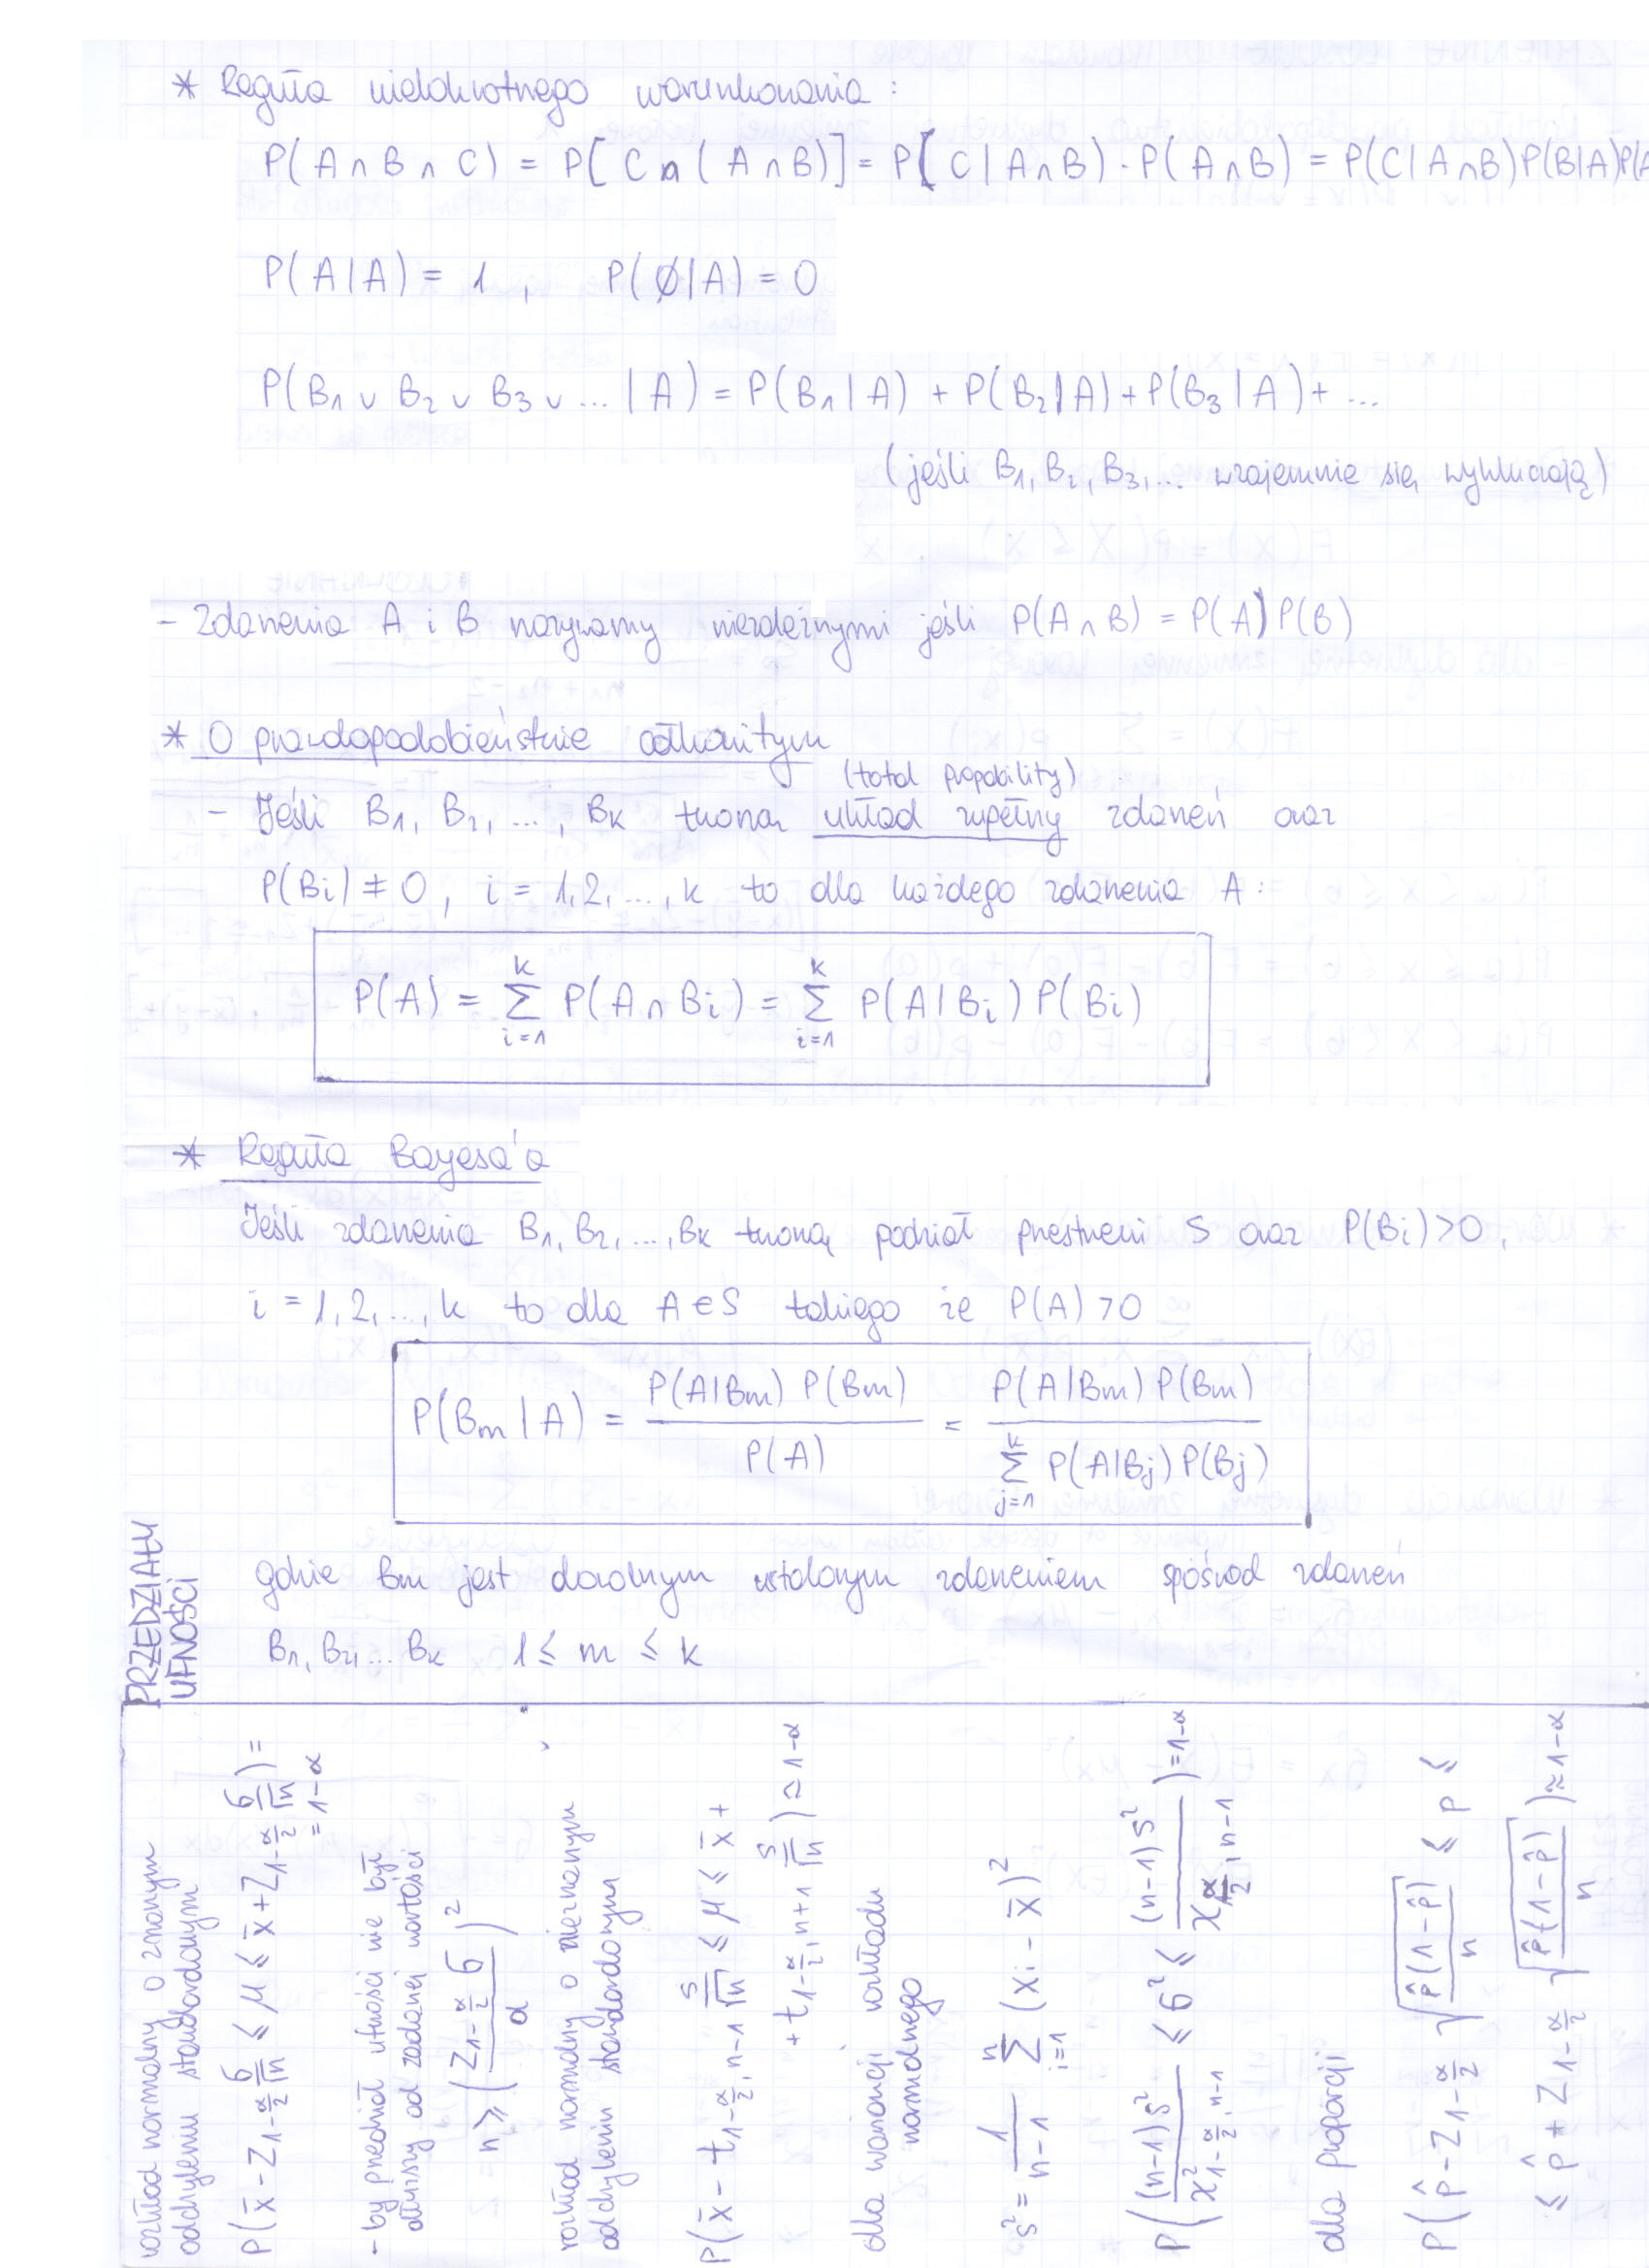 * Reguła wielokrotnego warunkowania :
P(A ∩ B ∩ C) = P[C ∩ (A ∩ B)] = P[C | A ∩ B) · P(A ∩ B) = P(C | A ∩ B) P(B|A) P(A
P(A|A) = 1 , P(∅|A) = 0
P(B₁ ∪ B₂ ∪ B₃ ∪ ... | A) = P(B₁|A) + P(B₂|A) + P(B₃|A) + ...
(jeśli B₁, B₂, B₃, ... wzajemnie się wykluczają)
- Zdarzenia A i B nazywamy niezależnymi jeśli P(A ∩ B) = P(A) P(B)
* O prawdopodobieństwie całkowitym
(total propability)
- Jeśli B₁, B₂, ..., Bk tworzą układ zupełny zdarzeń oraz
P(Bi) ≠ 0, i = 1,2, ..., k to dla każdego zdarzenia A:
P(A) = Σ_{i=1}^{k} P(A ∩ Bi) = Σ_{i=1}^{k} P(A|Bi) P(Bi)
* Reguła Bayesa'a
Jeśli zdarzenia B₁, B₂, ..., Bk tworzą podział przestrzeni S oraz P(Bi) > 0,
i = 1, 2, ..., k to dla A ∈ S takiego że P(A) > 0
P(Bm | A) = P(A|Bm) P(Bm) / P(A) = P(A|Bm) P(Bm) / Σ_{j=1}^{k} P(A|Bj) P(Bj)
gdzie Bm jest dowolnym ustalonym zdarzeniem spośród zdarzeń
B₁, B₂, ... Bk 1 ≤ m ≤ k
PRZEDZIAŁY
UFNOŚCI
rozkład normalny o znanym
odchyleniu standardowym
P(x̄ - Z_{1-α/2} σ/√n ≤ μ ≤ x̄ + Z_{1-α/2} σ/√n) =
= 1-α
- by przedział ufności nie był
dłuższy od zadanej wartości
n ≥ (Z_{1-α/2} σ / d)²
rozkład normalny o nieznanym
odchyleniu standardowym
P(x̄ - t_{1-α/2, n-1} s/√n ≤ μ ≤ x̄ +
+ t_{1-α/2, n+1} s/√n) ≈ 1-α
dla wariancji rozkładu
normalnego
s² = 1/(n-1) Σ_{i=1}^{n} (xi - x̄)²
P((n-1)s² / χ²_{1-α/2, n-1} ≤ σ² ≤ (n-1)s² / χ_{α/2, n-1}) = 1-α
dla proporcji
P(p̂ - Z_{1-α/2} √(p̂(1-p̂)/n) ≤ p ≤
≤ p̂ + Z_{1-α/2} √(p̂(1-p̂)/n)) ≈ 1-α